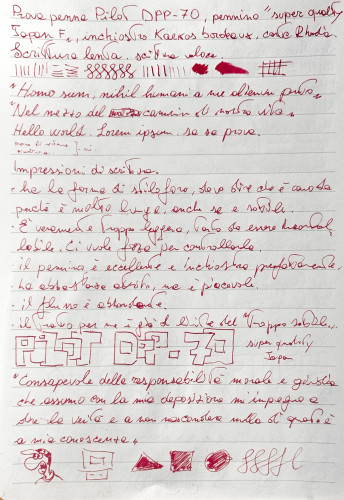 Prova penna Pilot DPP-70, pennino "super quality
Japan F", inchiostro Kaweco bordeaux, carta Rhodia
Scrittura lenta, scrittura veloce.
"Homo sum, nihil humani a me alienum puto"
"Nel mezzo del cammin di nostra vita"
Hello world. Lorem ipsum. sa sa prova.
Impressioni di scrittura.
- ha la forma di stilografica, devo dire che è comoda
perché è molto lunga, anche se è sottile.
- È veramente troppo leggera, tanto da essere incontrol
labile. Ci vuole forza per controllarla.
- il pennino è eccellente e l'inchiostro perfettamente.
- ha abbastanza attrito, ma è piacevole.
- il flusso è abbondante.
- il tratto per me è già al limite del "troppo sottile".
PILOT DP-70
super quality
Japan
"Consapevole della responsabilità morale e giuridica
che assumo con la mia deposizione mi impegno a
dire la verità e a non nascondere nulla di quanto è
a mia conoscenza"